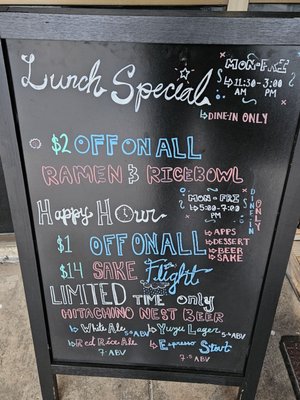 Lunch Special
MON-FRI
11:30-3:00
AM PM
DINE-IN ONLY
$2 OFF ON ALL
RAMEN & RICE BOWL
Happy Hour
MON-FRI
5:00-7:00
PM
DINE IN
ONLY
$1 OFF ON ALL
APPS
DESSERT
BEER
SAKE
$14 SAKE Flight
LIMITED TIME only
HITACHINO NEST BEER
White Ale
5% ABV
Yuzu Lager
5% ABV
Red Rice Ale
7% ABV
Espresso Stout
7.5% ABV